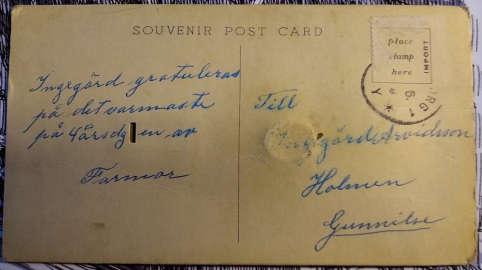 SOUVENIR POST CARD
Ingegärd gratuleras
på det varmaste
på 4årsdgen av
Farmor
place
stamp
here
IMPORT
RG 1
6.
Y
Till
Ingegärd Arvidsson
Holmen
Gunnilse